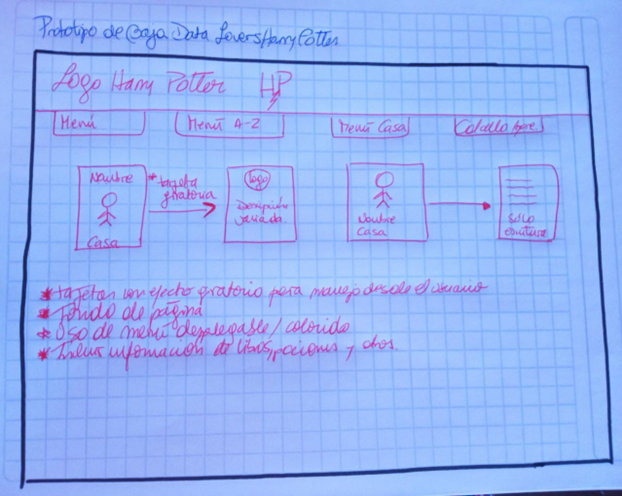 Prototipo de Baja Data Lovers Harry Potter
Logo Harry Potter HP
Menú
Menú A-Z
Menú Casa
Calculo
Nombre
Casa
*tarjeta
giratoria
logo
Descripción
Nombre
Casa
Solo
*tarjetas con efecto giratorio para manejo desde el usuario
*Fondo de página
*Uso de menú desplegable/colorido
*Incluir información de libros, pociones y otros.